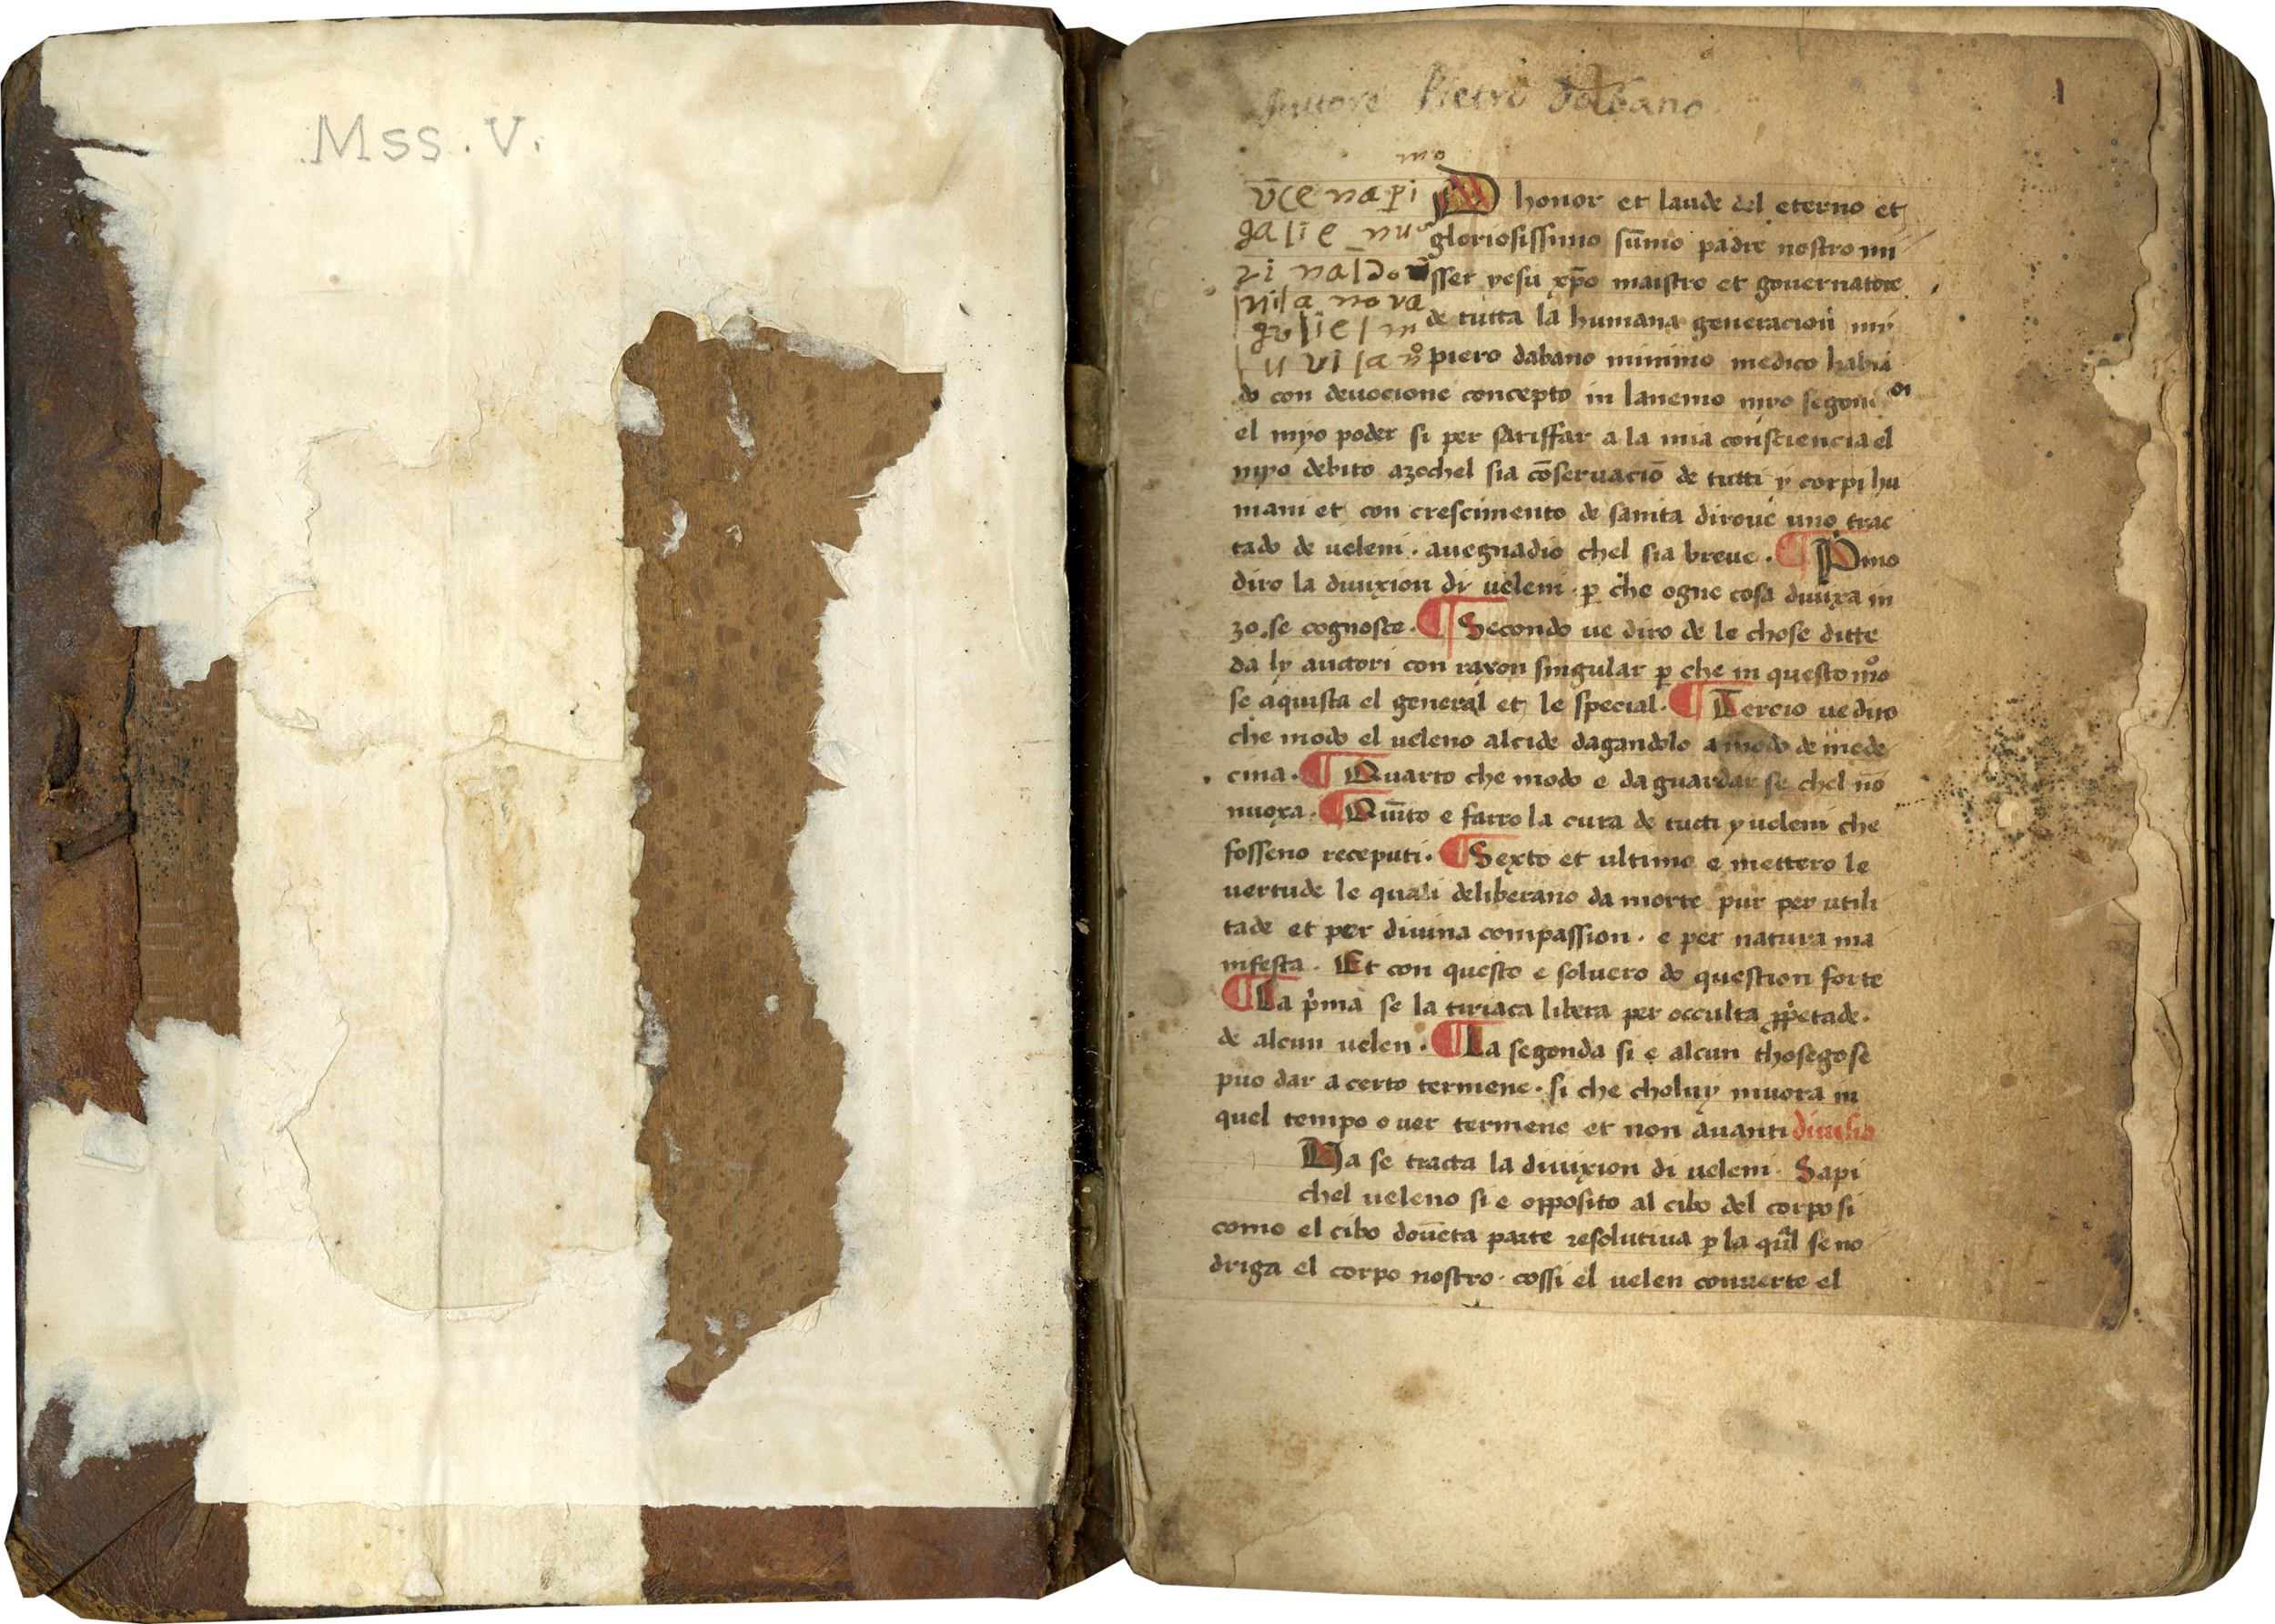 Mss. V.
Auttore Pietro d'Abano
1
mo
v̄ce na pi
galie_nus
ri naldo
vila nova
guliel m
honor et laude del eterno et
gloriosissimo sūmo padre nostro mi
sser yesu xp̄o maistro et governatore
de tutta la humana generacion my
piero dabano minimo medico habiā
do con devocione concepto in lanemo myo segondi
el myo poder si per satisffar a la mia consciencia el
myo debito azochel sia cōservaciō de tutti y corpi hu
mani et con crescimento de sanita dirove uno trac
tado de veleni. avegnadio chel sia breve. ¶ Pmo
diro la divixion di veleni. p̱ che ogne cosa divixa in
zo. se cognosce. ¶ Secondo ve diro de le chose ditte
da ly auctori con raxon singular p̱ che in questo mo
se aquista el general et le special. ¶ Tercio ve diro
che modo el veleno alcide dagandolo a modo de mede
cina. ¶ Quarto che modo e da guardar se chel nō
nuoxa. ¶ Quīto e farro la cura de tucti y veleni che
fosseno receputi. ¶ Sexto et ultimo e mettero le
vertude le quali deliberano da morte pur per utili
tade et per divina compassion. e per natura ma
nifesta. Et con questo e solvero do question forte
¶ La p̄ma se la tiriaca libera per occulta ꝓp̄etade.
de alcun velen. ¶ La segonda si e alcun thosego se
puo dar a certo termene. si che choluy muora in
quel tempo over termene et non avanti divisio
Qa se tracta la divixion di veleni. Sapi
chel veleno si e opposito al cibo del corpo si
como el cibo dovēta parte resolutiva p̱ la qual se no
driga el corpo nostro. cossi el velen converte el